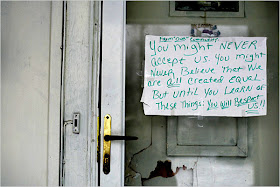 You might NEVER
Accept US. You might
Never Believe That We
are all created EQUAL.
But until you Learn of
These Things: You will Respect
US!!